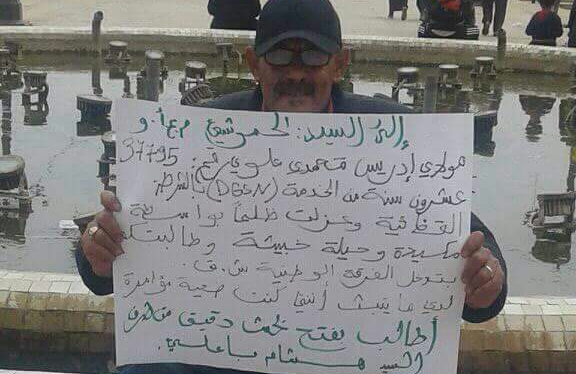 إلى السيد: الحموشي م ع أ و
مولاي إدريس محمدي علوي رقم: 37795
عشرون سنة من الخدمة (DGSN) بالشرطة
القضائية وعزلت ظلما بواسطة
مكيدة وحيلة خبيثة وطالبت
بتدخل الفرقة الوطنية ش.ق.
لدي ما يثبت أنني كنت ضحية مؤامرة
أطالب بفتح بحث دقيق من طرف
السيد هشام باعلي.